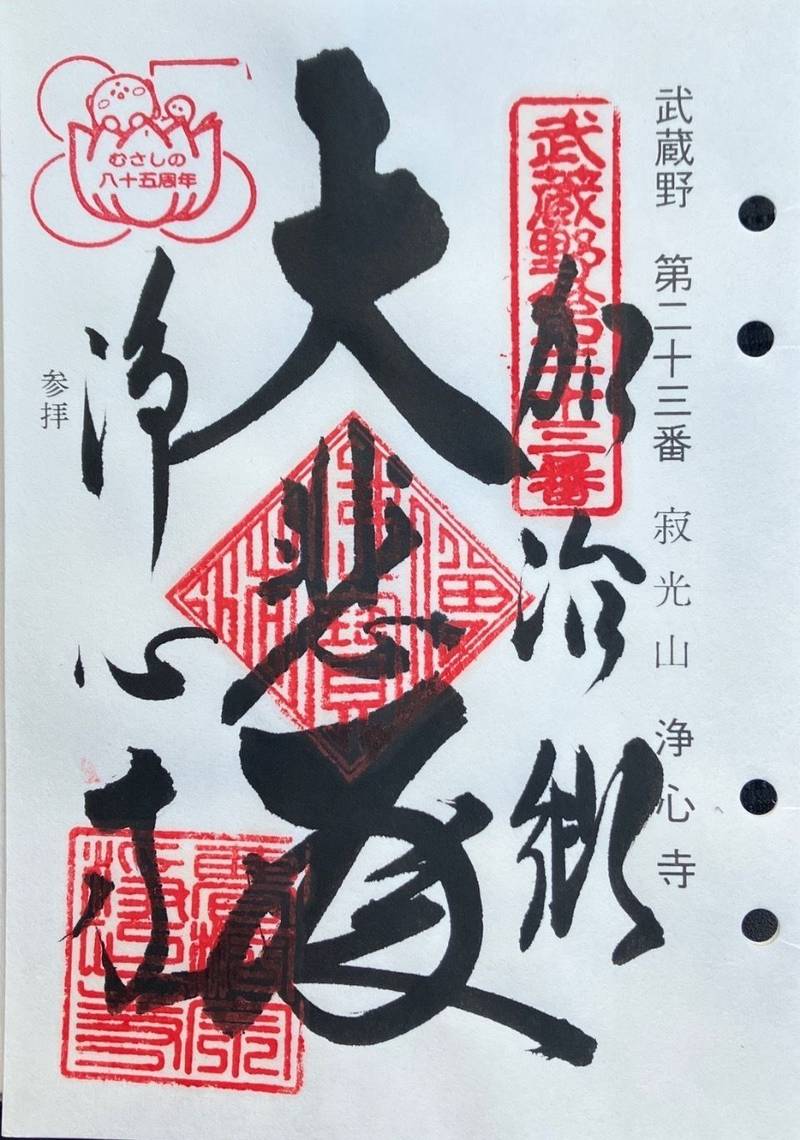 武蔵野 第二十三番 寂光山 浄心寺
武蔵野第二十三番
加治郷
大悲殿
浄心寺
参拝
むさしの
八十五周年